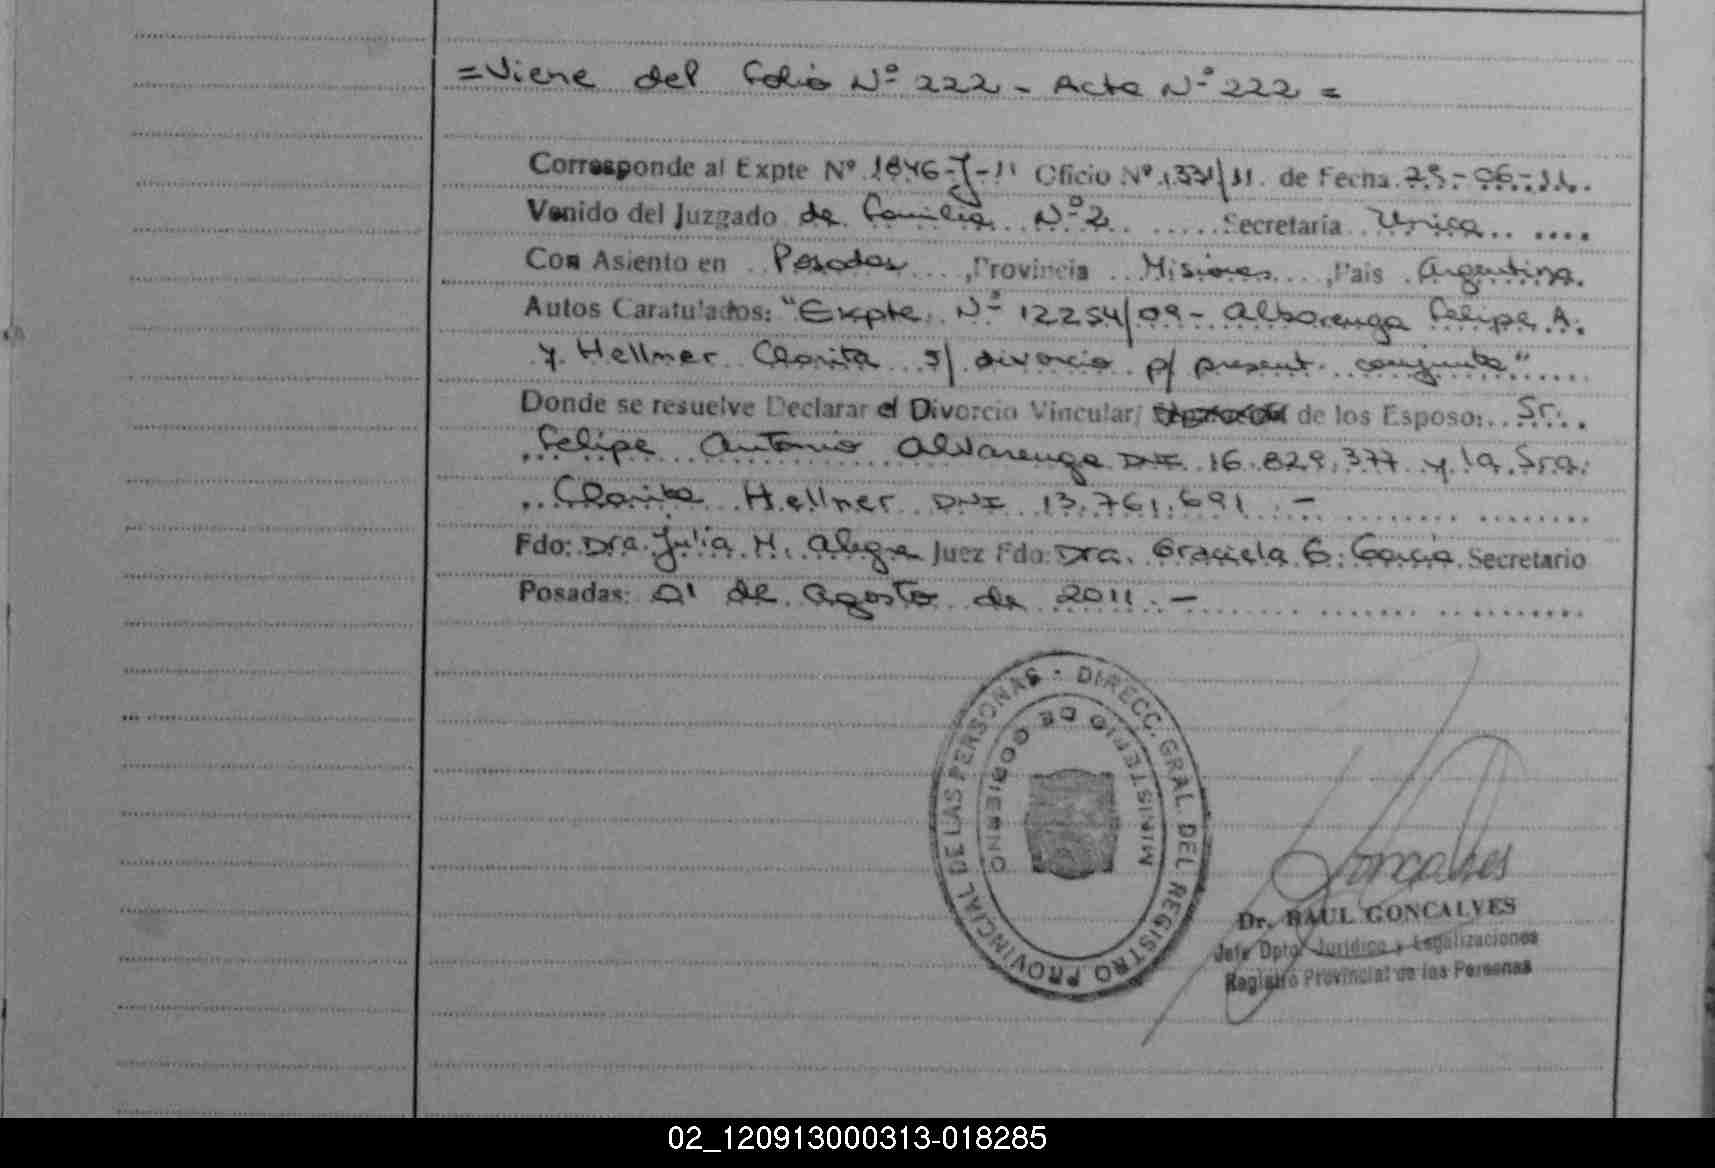 =Viene del folio Nº 222 - Acta Nº 222 =
Corresponde al Expte Nº 1846-J-11 Oficio Nº 1331/11. de Fecha 29-06-11.
Venido del Juzgado de Familia Nº 2 Secretaría Unica
Con Asiento en Posadas, Provincia Misiones, Pais Argentina.
Autos Caratulados: "Expte. Nº 12254/09- Albarenga Felipe A.
y Hellmer Clarita s/ divorcio p/ present. conjunta"
Donde se resuelve Declarar el Divorcio Vincular/ de los Esposo: Sr.
Felipe Antonio Alvarenga DNI 16.829.377 y la Sra.
Clarita Hellmer DNI 13.761.691 . -
Fdo: Dra. Julia M. Alegre Juez Fdo: Dra. Graciela E. Garcia Secretario
Posadas: 01 de Agosto de 2011 . -
DIRECC. GRAL. DEL REGISTRO PROVINCIAL DE LAS PERSONAS -
MINISTERIO DE GOBIERNO
Goncalves
Dr. RAUL GONCALVES
Jefe Dpto. Jurídico y Legalizaciones
Registro Provincial de las Personas
02_120913000313-018285